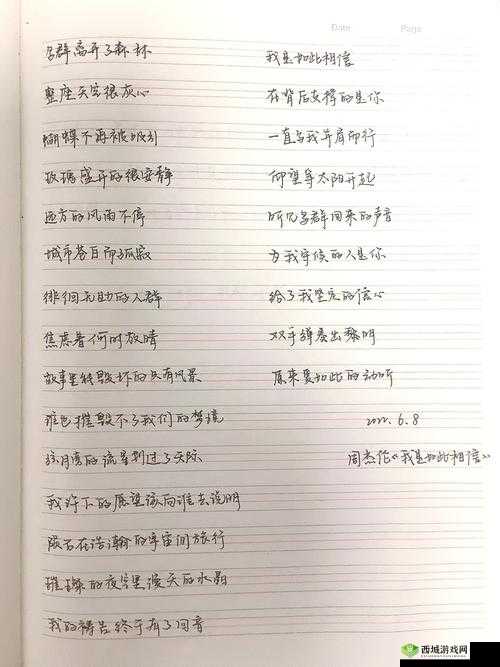 Date
Page
鸟群离开了森林
整座天空很灰心
蝴蝶不再被吸引
玫瑰盛开的很安静
远方的风雨不停
城市苍白而孤寂
徘徊无助的人群
焦虑着何时放晴
故事里能毁坏的只有风景
谁也摧毁不了我们的梦境
弦月旁的流星划过了天际
我许下的愿望该向谁去说明
陨石在浩瀚的宇宙间旅行
璀璨的夜空里漫天的水晶
我的祷告终于有了回音
我是如此相信
在背后支撑的是你
一直与我并肩而行
仰望等太阳升起
听见鸟群回来的声音
为我守候的人是你
给了我坚定的信心
双手弹奏出黎明
原来要如此的动听
2022.6.8
周杰伦《我是如此相信》
西城游戏网